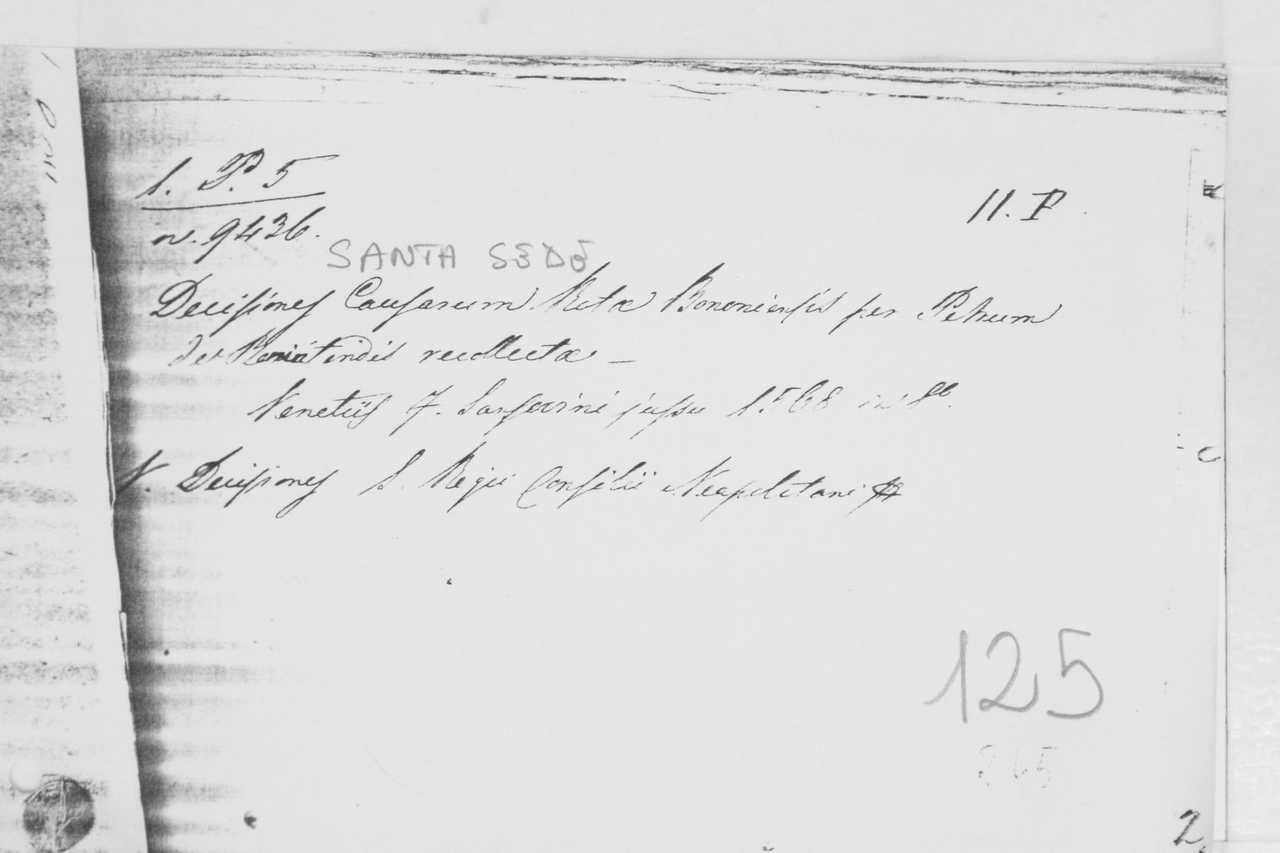 1. P. 5
n. 9436.
11. P.
SANTA SEDE
Decisiones Causarum Rotæ Bononiensis per Petrum
de recollectæ –
Venetiis F. Sansovini jussu 1568 in 8º.
V. Decisiones S. Regii Consilii Neapolitani
125
265
2